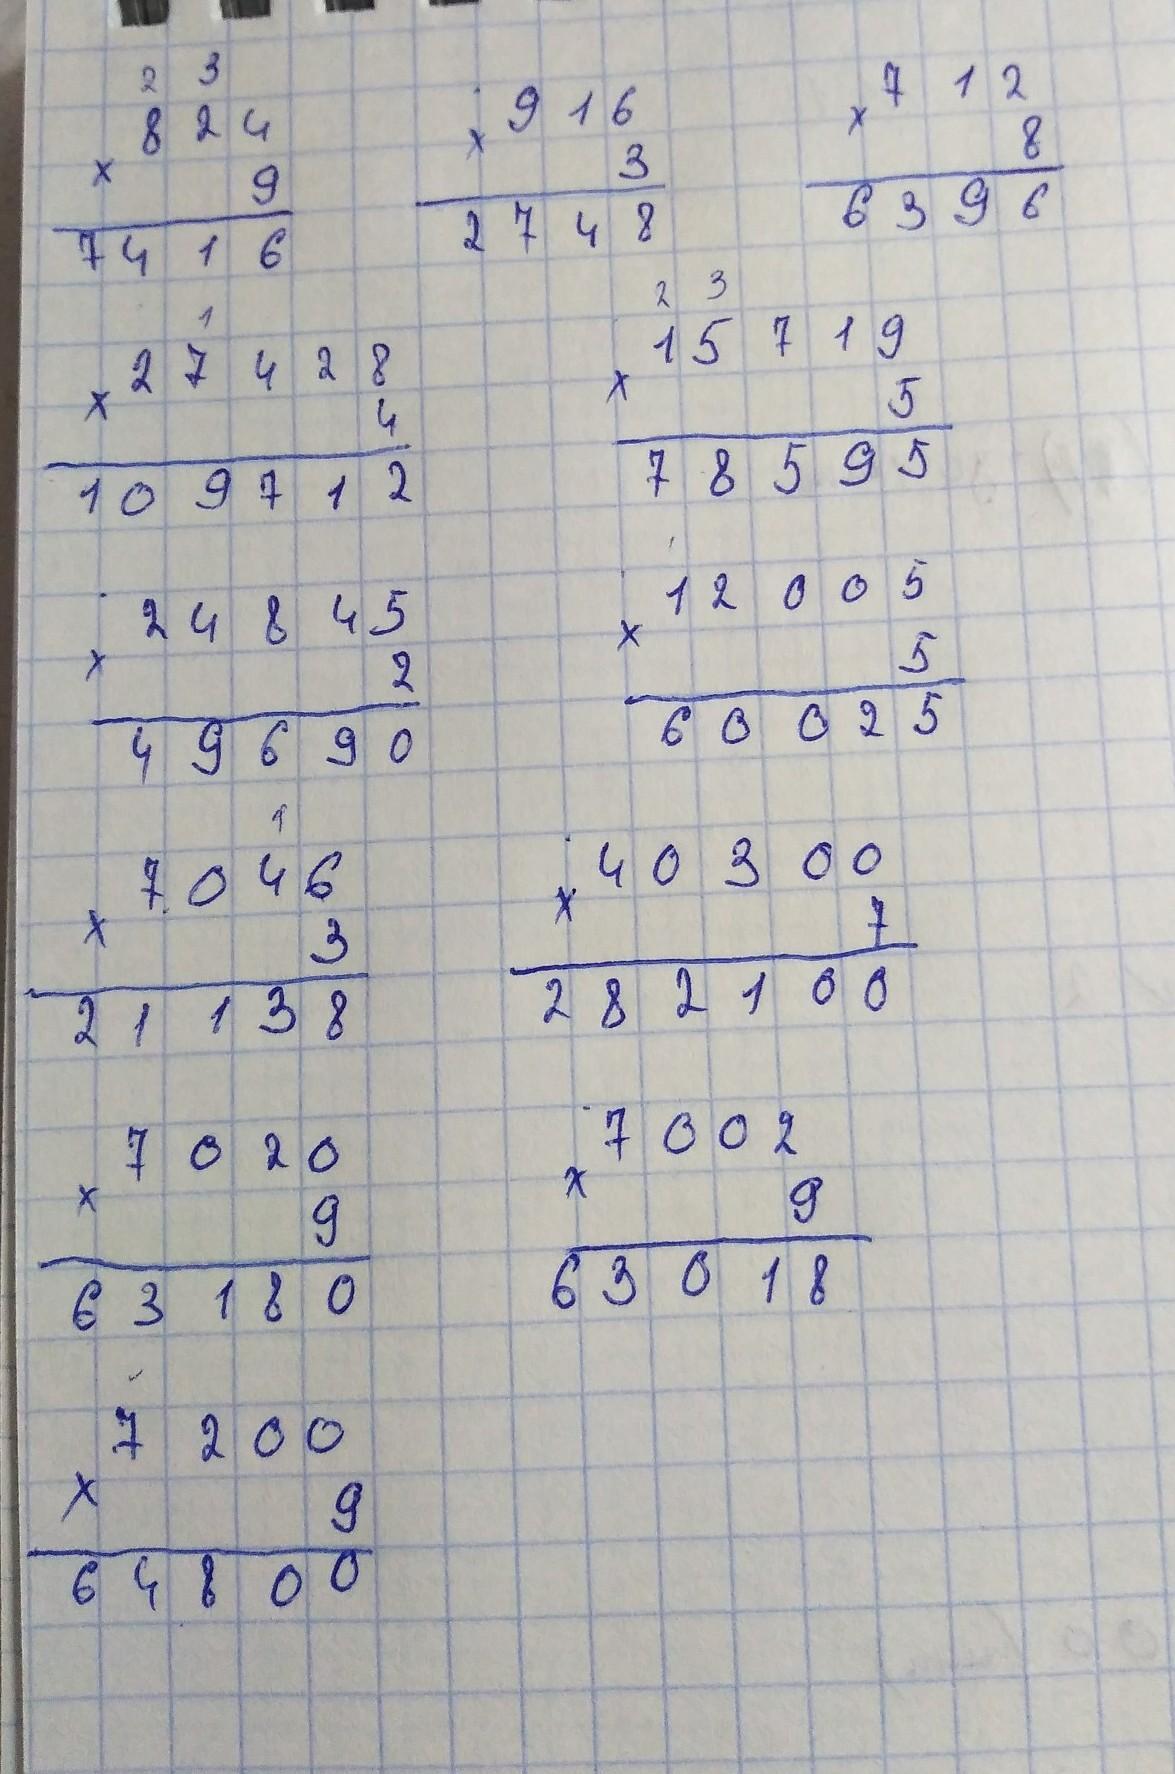 2 3
824
× 9
7416
916
× 3
2748
712
× 8
6396
1
27428
× 4
109712
2 3
15719
× 5
78595
24845
× 2
49690
12005
× 5
60025
1
7046
× 3
21138
40300
× 7
282100
7020
× 9
63180
7002
× 9
63018
7200
× 9
64800